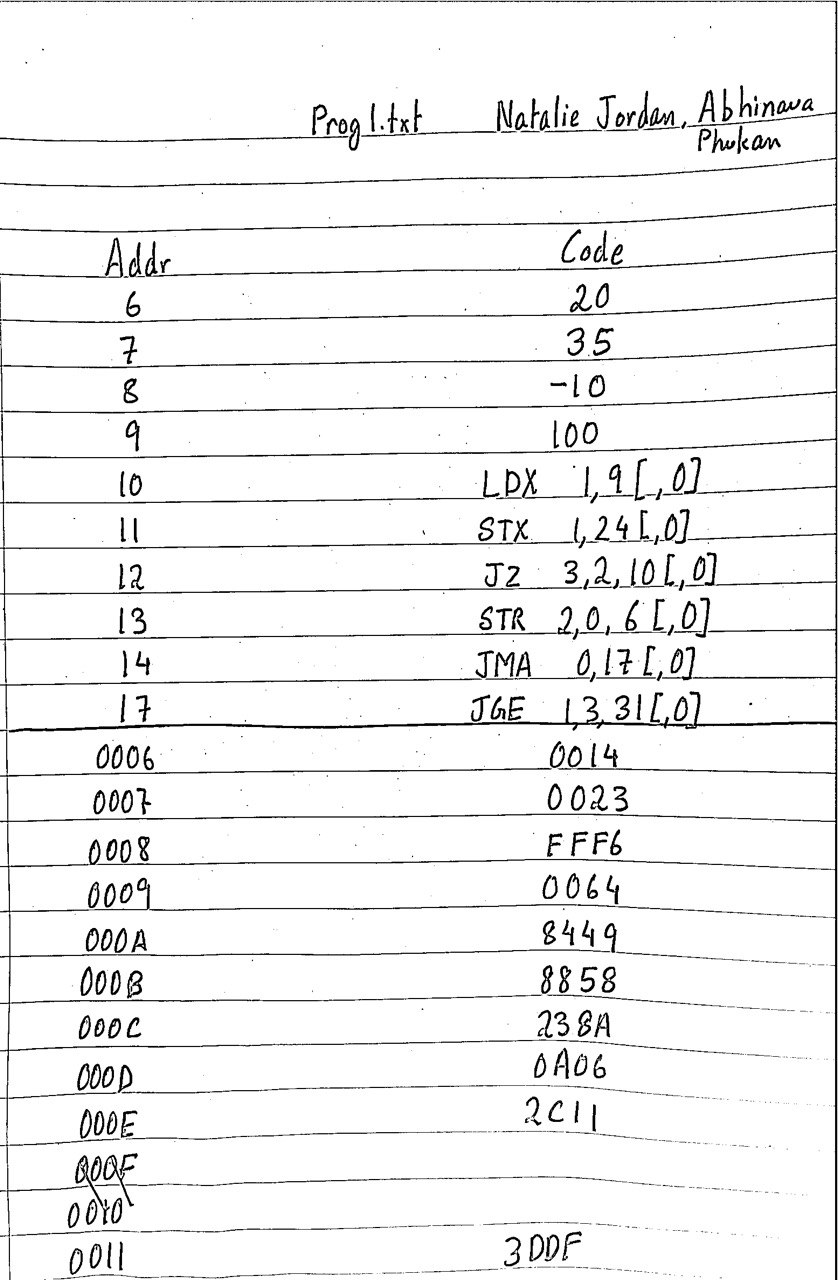 Prog 1.txt Natalie Jordan, Abhinava
Phukan
Addr Code
6 20
7 35
8 -10
9 100
10 LDX 1,9[,0]
11 STX 1,24[,0]
12 JZ 3,2,10[,0]
13 STR 2,0,6[,0]
14 JMA 0,17[,0]
17 JGE 1,3,31[,0]
0006 0014
0007 0023
0008 FFF6
0009 0064
000A 8449
000B 8858
000C 238A
000D 0A06
000E 2C11
000F
0010
0011 3DDF